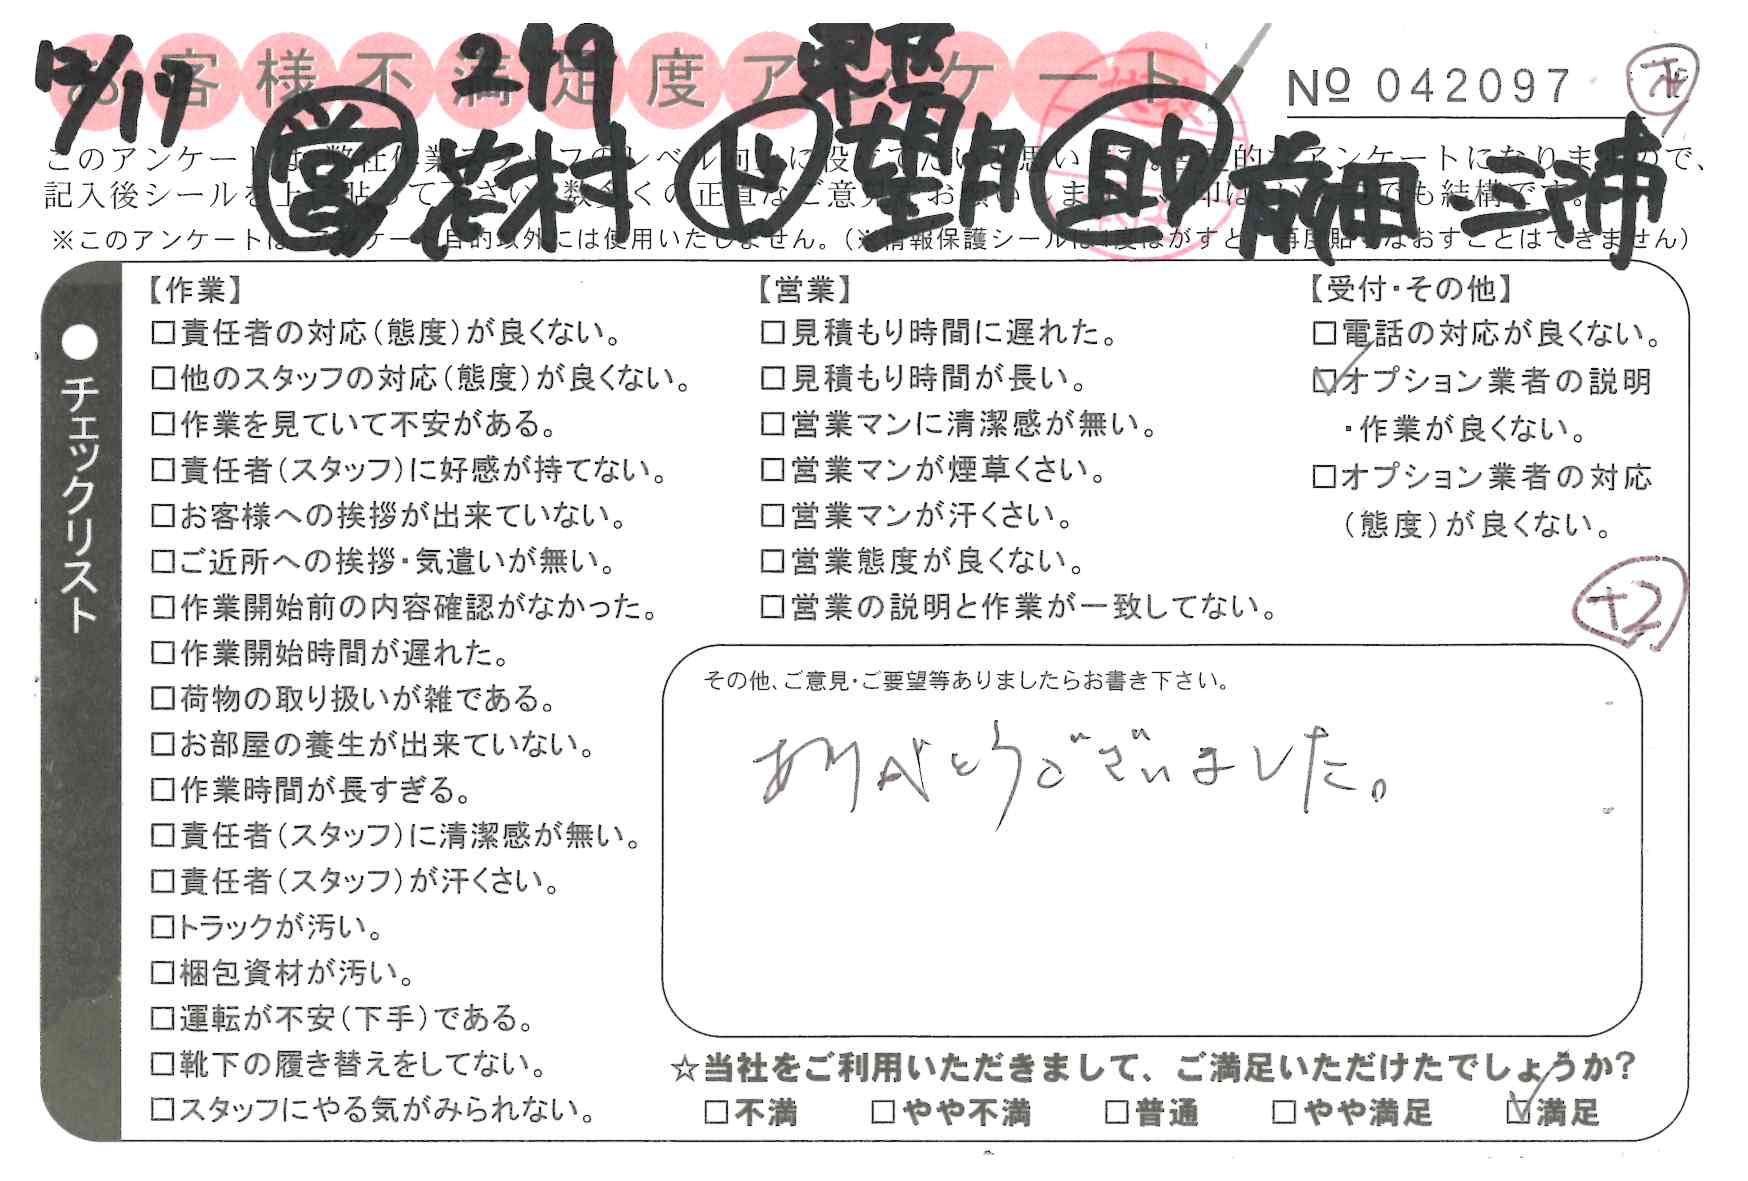 お客様不満足度アンケート
12/17 249
№ 042097
営 若村 ドル 望月 助 前田 三浦
このアンケートは
記入後シールを
※このアンケートはアンケート目的以外には使用いたしません。（※情報保護シールは1度はがすと、再度貼りなおすことはできません）
●チェックリスト
【作業】
□責任者の対応（態度）が良くない。
□他のスタッフの対応（態度）が良くない。
□作業を見ていて不安がある。
□責任者（スタッフ）に好感が持てない。
□お客様への挨拶が出来ていない。
□ご近所への挨拶・気遣いが無い。
□作業開始前の内容確認がなかった。
□作業開始時間が遅れた。
□荷物の取り扱いが雑である。
□お部屋の養生が出来ていない。
□作業時間が長すぎる。
□責任者（スタッフ）に清潔感が無い。
□責任者（スタッフ）が汗くさい。
□トラックが汚い。
□梱包資材が汚い。
□運転が不安（下手）である。
□靴下の履き替えをしてない。
□スタッフにやる気がみられない。
【営業】
□見積もり時間に遅れた。
□見積もり時間が長い。
□営業マンに清潔感が無い。
□営業マンが煙草くさい。
□営業マンが汗くさい。
□営業態度が良くない。
□営業の説明と作業が一致してない。
【受付・その他】
□電話の対応が良くない。
☑オプション業者の説明
・作業が良くない。
□オプション業者の対応
（態度）が良くない。
+2
その他、ご意見・ご要望等ありましたらお書き下さい。
ありがとうございました。
☆当社をご利用いただきまして、ご満足いただけたでしょうか?
□不満 □やや不満 □普通 □やや満足 ☑満足